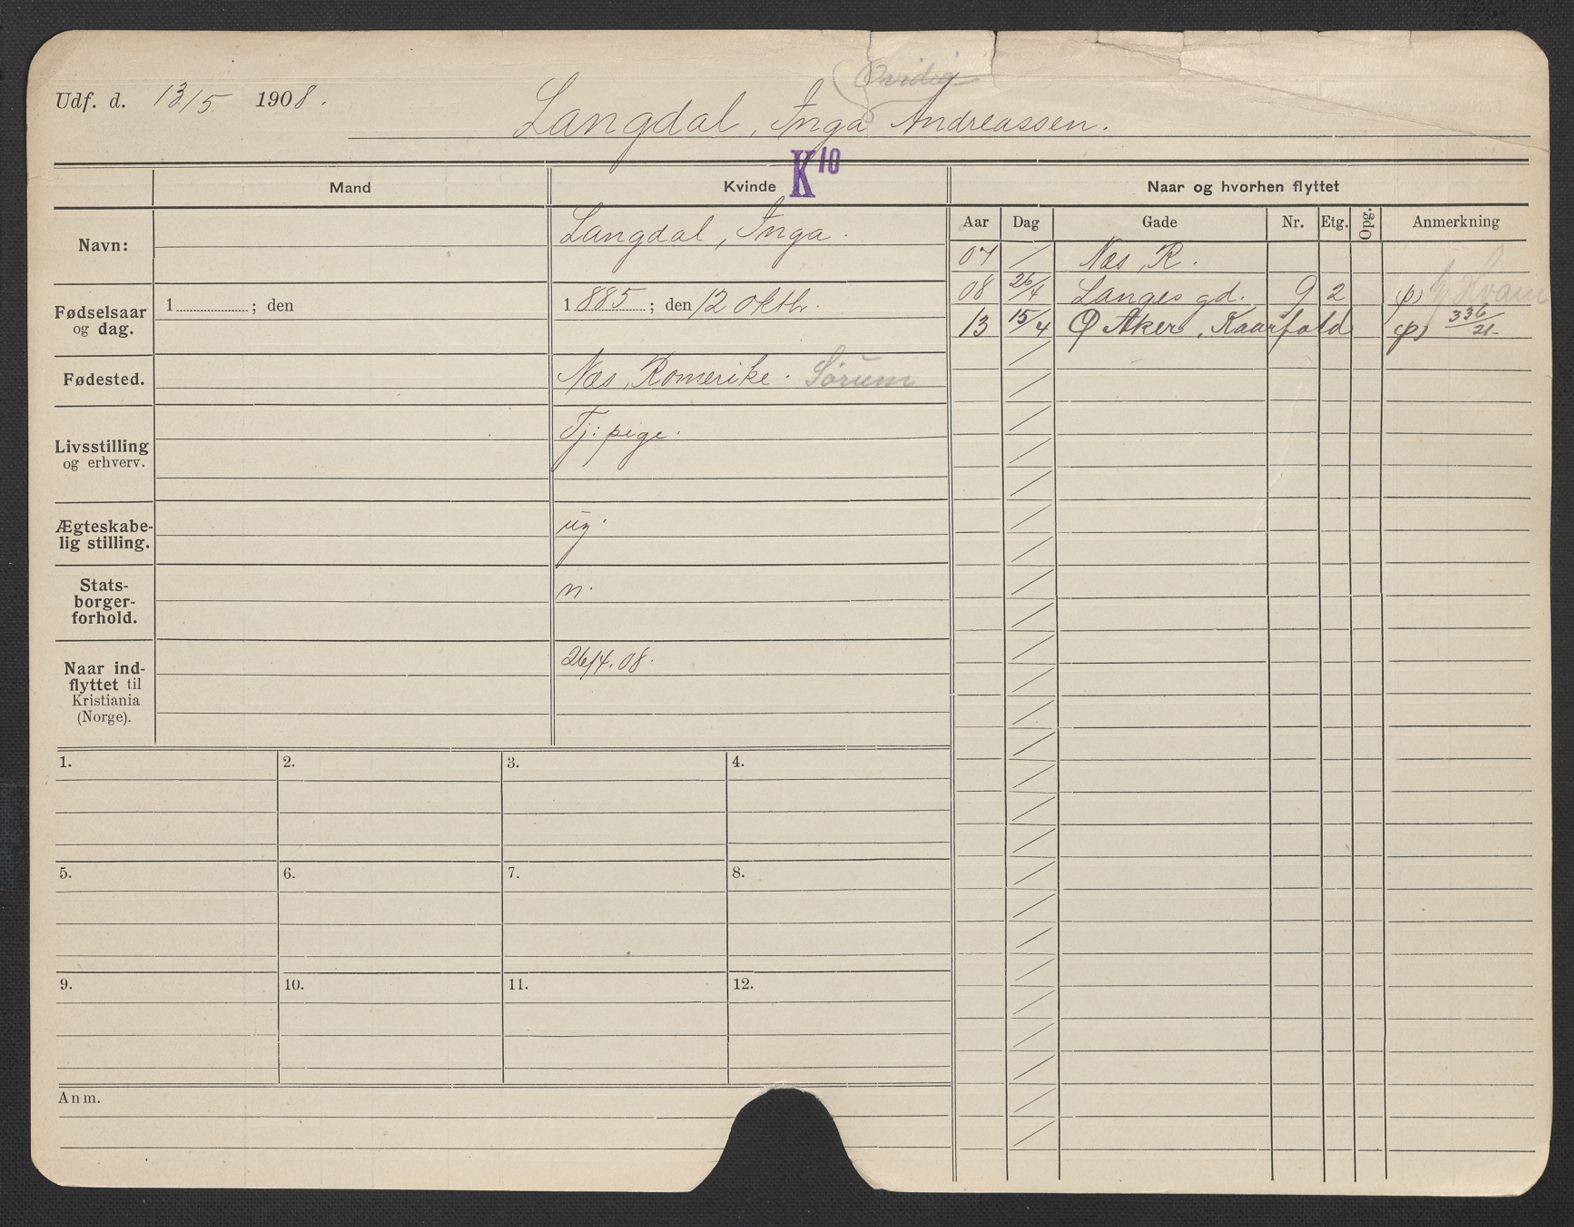 Udf. d. 13/5 1908.
Langdal, Inga Andreassen.
K10
Mand
Kvinde
Naar og hvorhen flyttet
Navn:
Langdal, Inga.
Fødselsaar og dag.
1 ; den
1885 ; den 12 oktbr.
Fødested.
Næs, Romerike. Sørum
Livsstilling og erhverv.
Tj: pige.
Ægteskabelig stilling.
ug.
Statsborgerforhold.
n.
Naar indflyttet til Kristiania (Norge).
26/4. 08.
Aar Dag Gade Nr. Etg. Opg. Anmerkning
07 / Næs, R.
08 26/4 Langes gd. 9 2 Hvam
13 15/4 Ø Aker, 336/21
1. 2. 3. 4.
5. 6. 7. 8.
9. 10. 11. 12.
Anm.